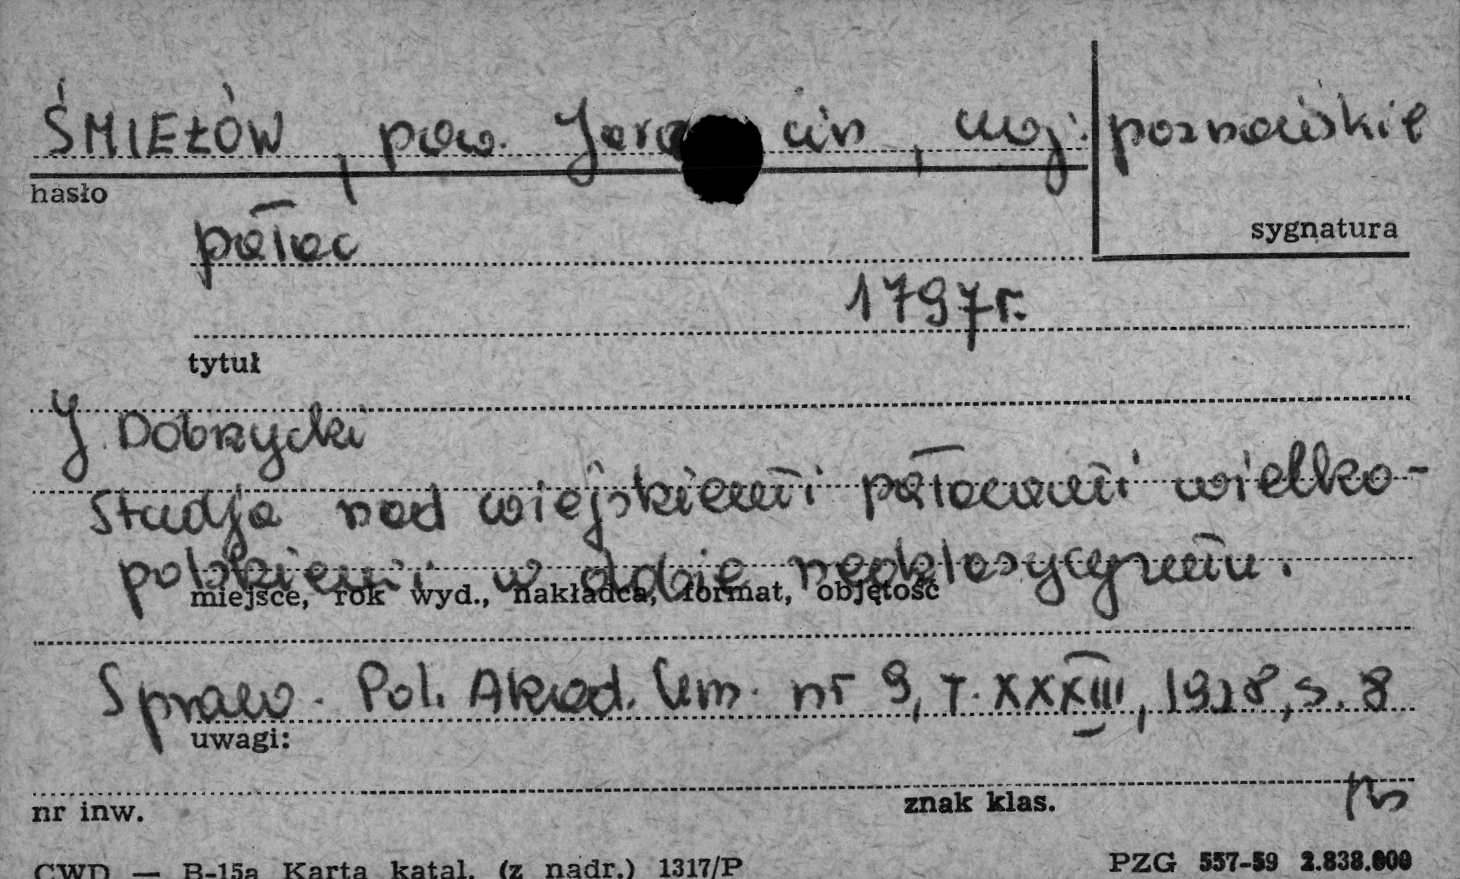 ŚMIEŁÓW, pow. Jaro cin, woj. poznańskie
hasło
sygnatura
pałac
1797 r.
tytuł
J. Dobrzycki
Studja nad wiejskiemi pałacami wielko-
polskiemi w dobie neoklasycyzmu.
miejsce, rok wyd., nakładca, format, objętość
Spraw. Pol. Akad. Um. nr 9, T. XXXIII, 1928, s. 8
uwagi:
nr inw.
znak klas.
CWD — B-15a Karta katal. (z nadr.) 1317/P
PZG 557-59 2.838.000